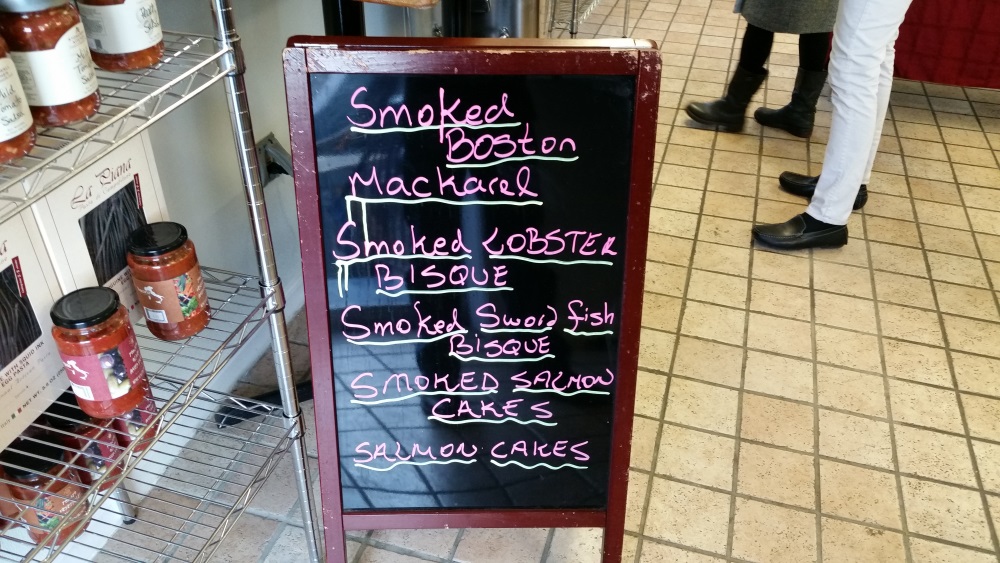 Smoked
Boston
Mackarel
Smoked LOBSTER
BISQUE
Smoked Sword fish
BISQUE
SMOKED SALMON
CAKES
SALMON CAKES
La Piana
WITH SQUID INK
EGG PASTA